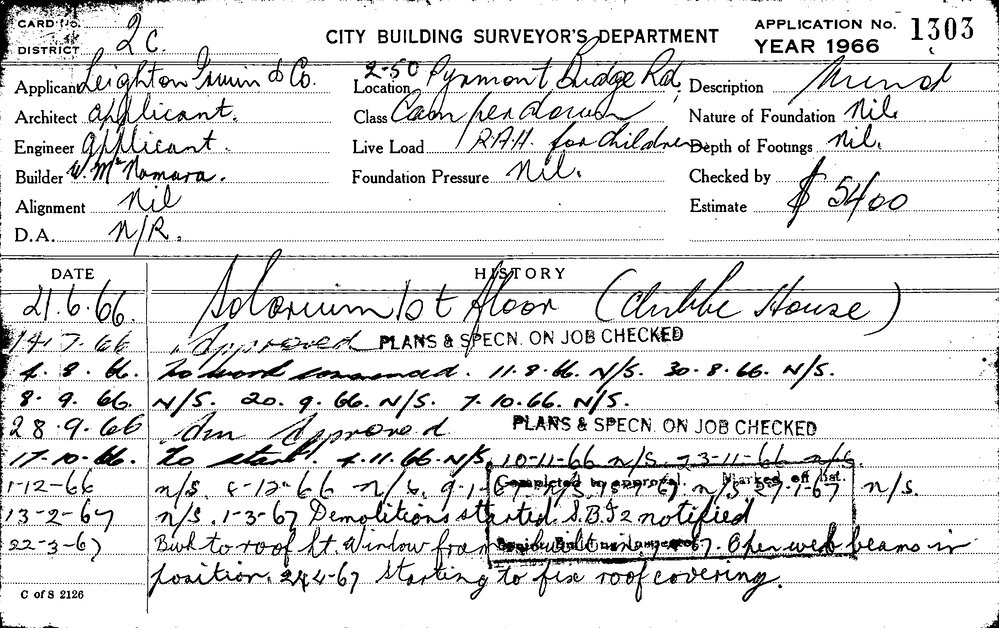 CARD No.
DISTRICT 2C.
CITY BUILDING SURVEYOR'S DEPARTMENT
APPLICATION No. 1303
YEAR 1966
Applicant Leighton Irwin & Co.
Location 2-50 Pyrmont Bridge Rd.
Description
Architect applicant.
Class Camperdown
Nature of Foundation Nil.
Engineer applicant.
Live Load R.A.H. for Children
Depth of Footings Nil.
Builder W. McNamara.
Foundation Pressure Nil.
Checked by
Alignment Nil
Estimate $ 5400
D.A. N/R.
DATE HISTORY
21.6.66. Solarium 1st Floor (Clubbe House)
14.7.66 Approved PLANS & SPECN. ON JOB CHECKED
4.8.66. No work commenced. 11.8.66. N/S. 30.8.66. N/S.
8.9.66. N/S. 20.9.66. N/S. 7.10.66. N/S.
28.9.66 Am Approved PLANS & SPECN. ON JOB CHECKED
17.10.66. To start. 4.11.66. N/S. 10-11-66 n/s. 23-11-66 n/s.
1-12-66 n/s. 8-12-66 n/s. 9-1-67 n/s. n/s 27-1-67 n/s.
13-2-67 n/s. 1-3-67 Demolitions started. notified
22-3-67 to roof ht. Window Open web beams in
position. 24-4-67 Starting to fix roof covering.
Completed to approval. Marked off list.
C of S 2126